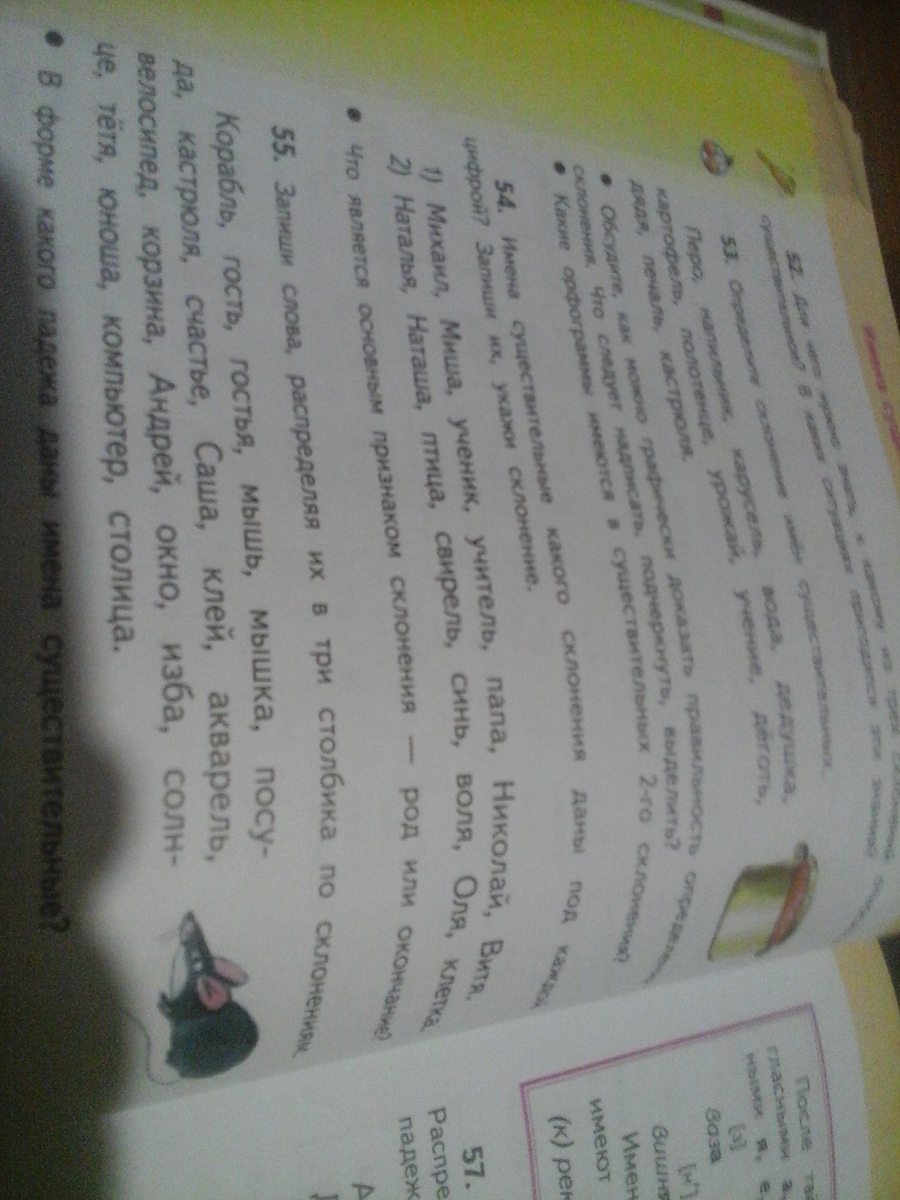 52. Для чего нужно знать, к какому из трёх склонений
существительные? В каких ситуациях пригодятся эти знания?
53. Определите склонение имён существительных.
Перо, напильник, карусель, вода, дедушка,
картофель, полотенце, урожай, учение, дёготь,
дядя, печаль, кастрюля.
• Обсудите, как можно графически доказать правильность
склонения. Что следует надписать, подчеркнуть, выделить?
• Какие орфограммы имеются в существительных 2-го склонения?
54. Имена существительные какого склонения даны под каждой
цифрой? Запиши их, укажи склонение.
1) Михаил, Миша, ученик, учитель, папа, Николай, Витя.
2) Наталья, Наташа, птица, свирель, синь, воля, Оля, клетка.
• Что является основным признаком склонения — род или окончание?
55. Запиши слова, распределяя их в три столбика по склонениям.
Корабль, гость, гостья, мышь, мышка, посу-
да, кастрюля, счастье, Саша, клей, акварель,
велосипед, корзина, Андрей, окно, изба, солн-
це, тётя, юноша, компьютер, столица.
• В форме какого падежа даны имена существительные?
После
гласными а
ными я, е
[з]
ваза
[н']
вишня
Имен
имеют
(к) рек
57.
Распре
падеж